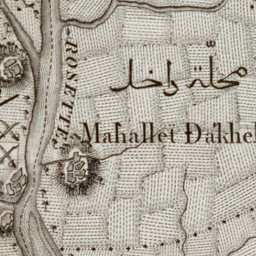 ROSETTE
محلّة داخل
Mahallet Dakhel